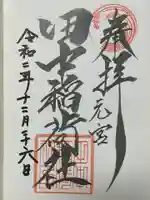 奉拝
元宮
田中稲荷社
令和二年十二月十六日